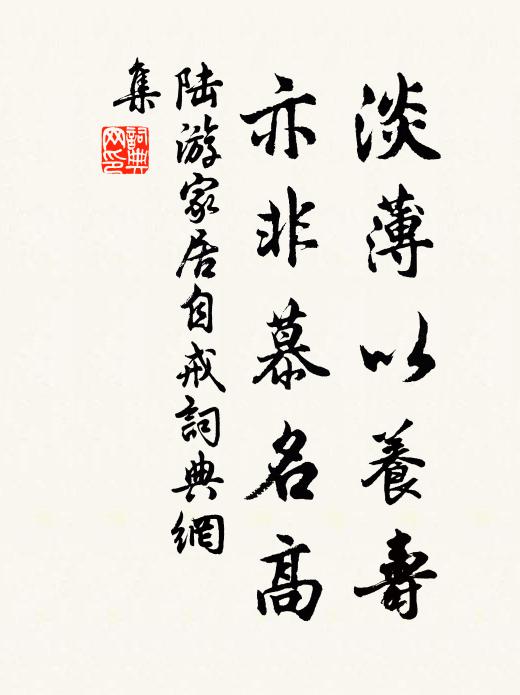 淡薄以養壽
亦非慕名高
陆游家居自戒詞典網
集
詞典
网印